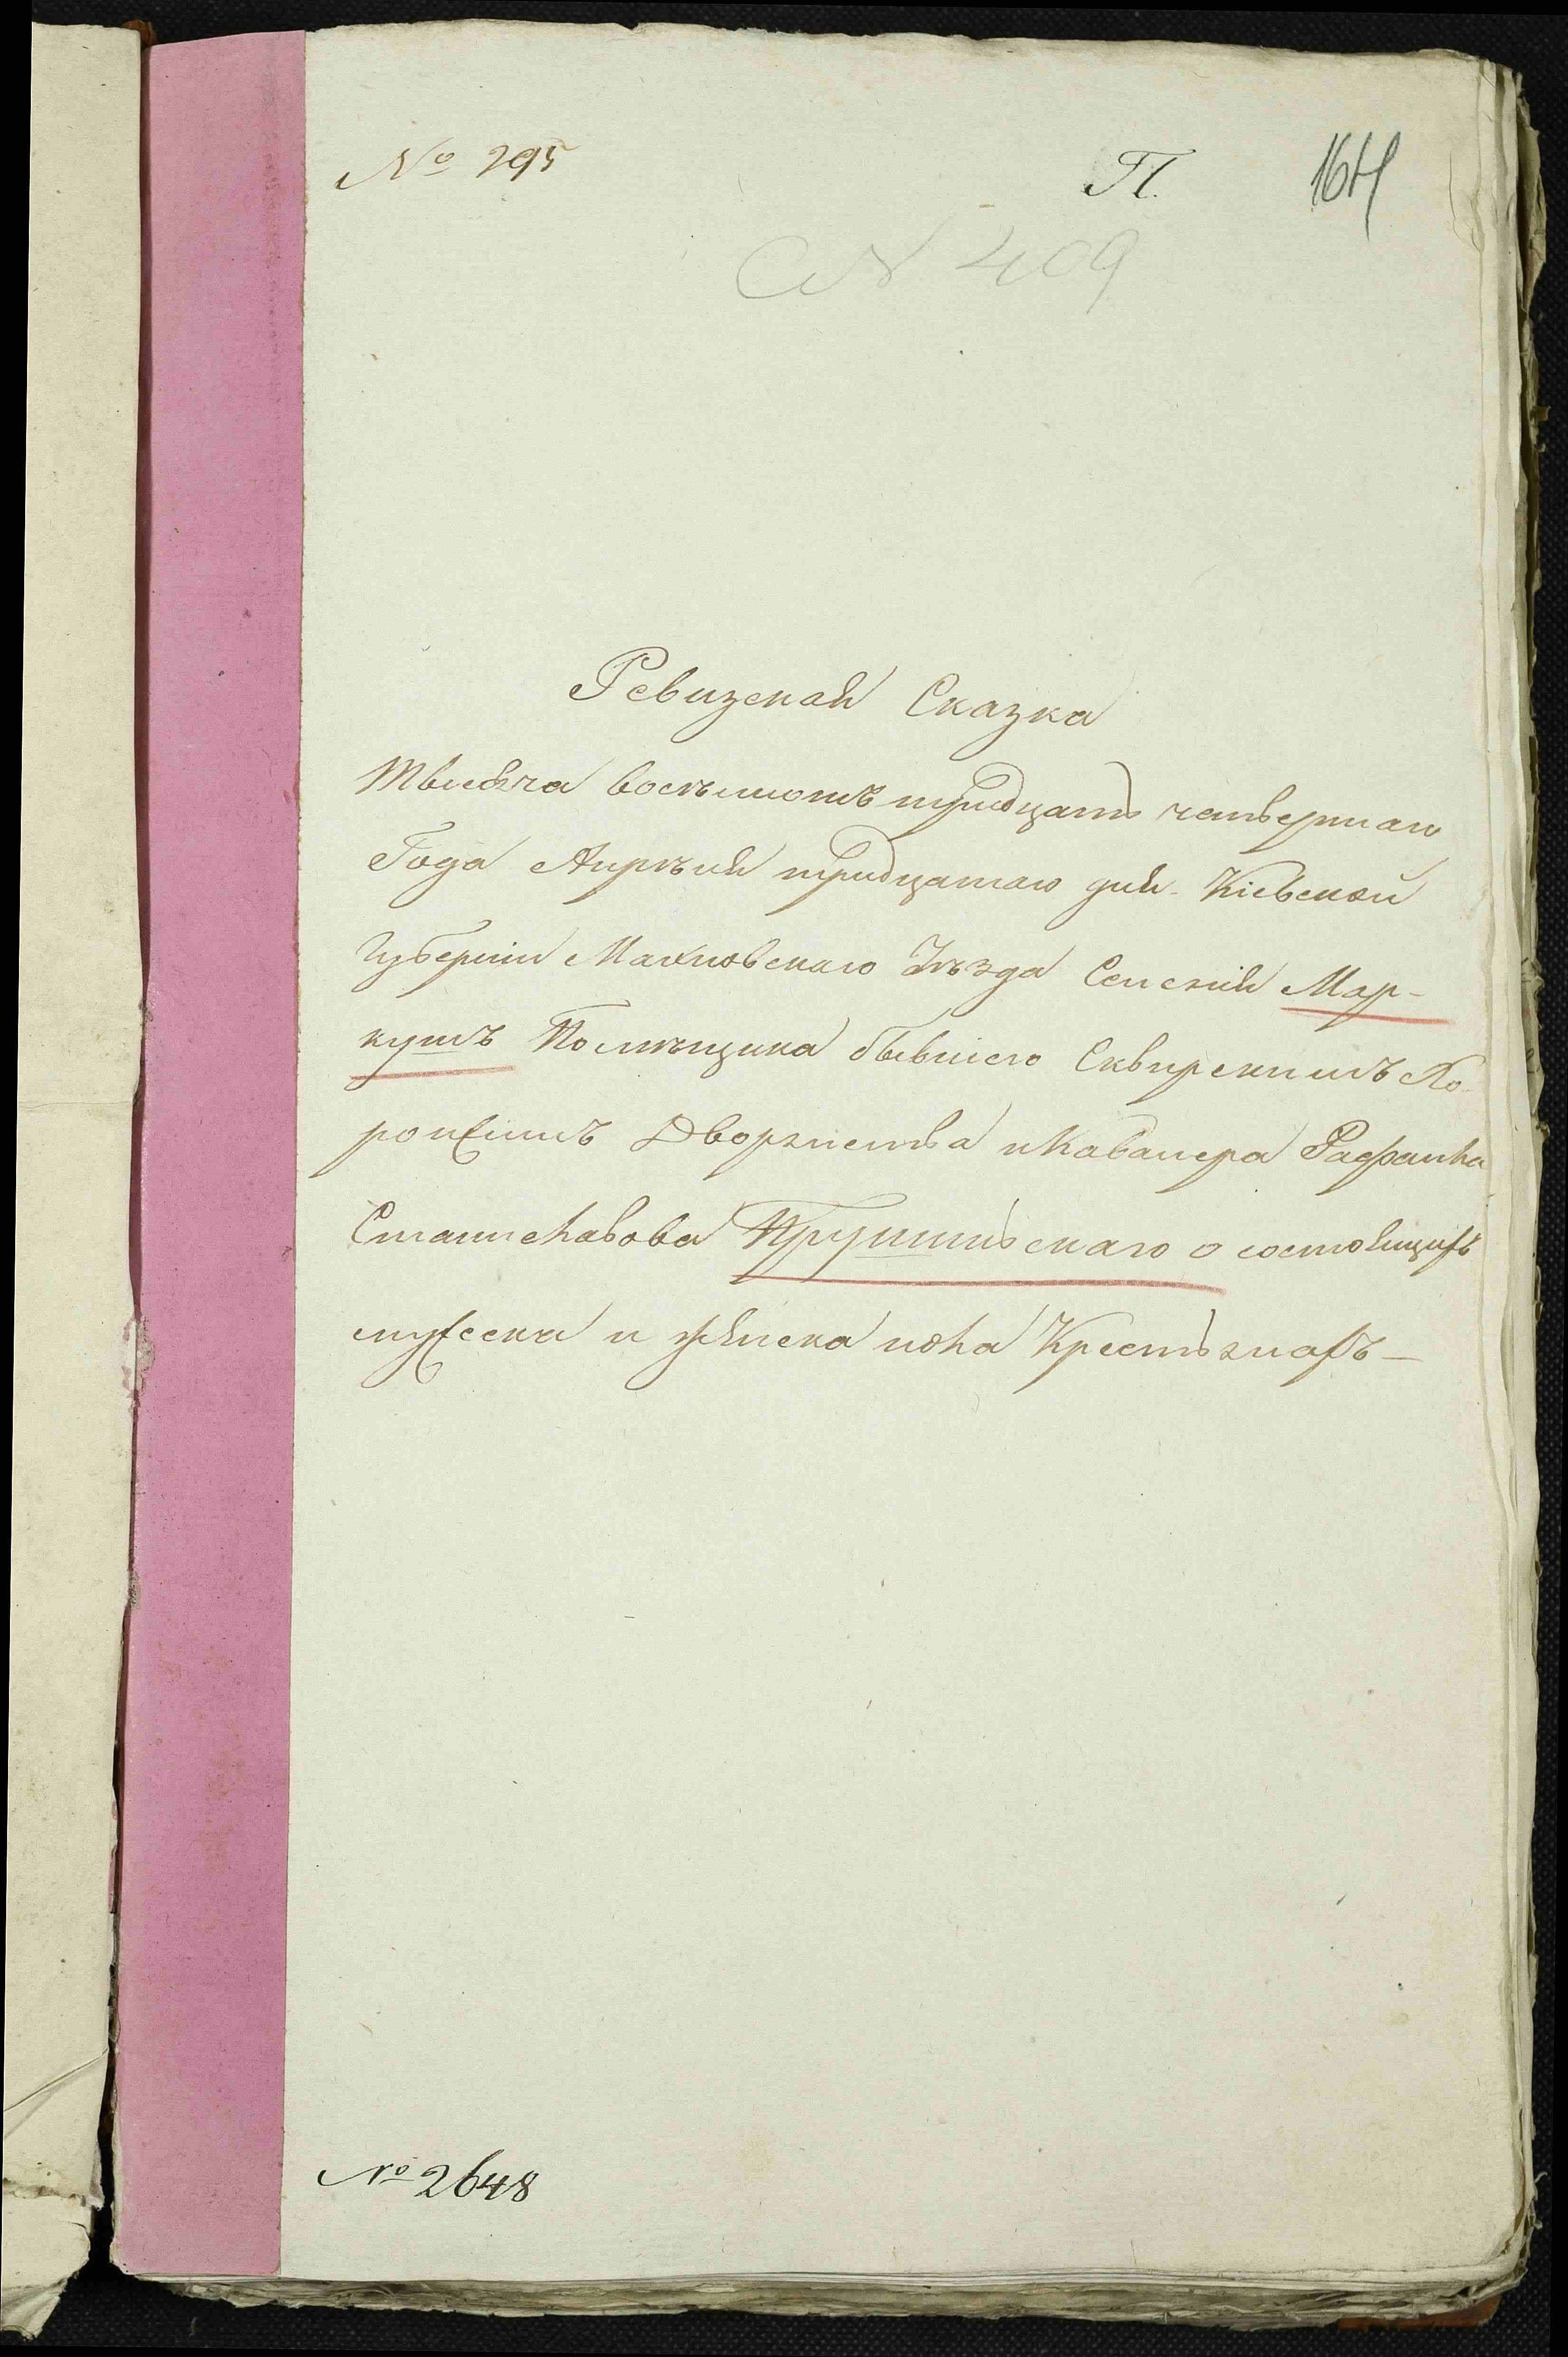 № 295
П.
164
№ 409
Ревизская Сказка
Тысяча восемьсотъ тридцать четвертаго
Года Апреля тридцатаго дня Кіевской
Губерніи Махновскаго Уезда Селенія Мар-
кушъ Помещика бывшего Сквирскимъ Хо-
рожимъ Дворянства и Кавалера Рафаила
Станиславова Прушинскаго о состоящихъ
мужеска и женска пола Крестьянахъ —
№ 2648